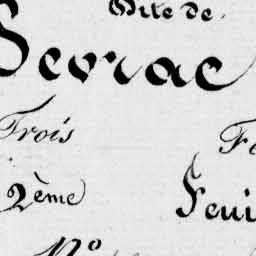 Dite de
Sevrac
Trois
2ème
Feui
No